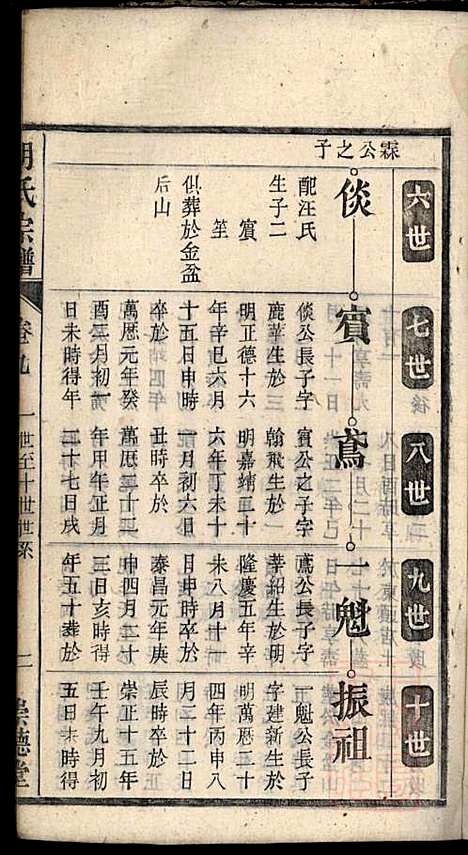 六世
七世
八世
九世
十世
霖公之子
倓
賔
鳶
一魁
振祖
配汪氏
生子二
賔
笙
俱葬於金盆
后山
倓公長子字
鹿苹生於
明正德十六
年辛巳六月
十五日申時
卒於
萬厯元年癸
酉三月初一
日未時得年
賔公之子字
翰飛生於
明嘉靖二十
六年丁未十
一月初六日
丑時卒於
萬厯二十二
年甲午正月
二十七日戌
鳶公長子字
莘紹生於明
隆慶五年辛
未八月十一
日申時卒於
泰昌元年庚
申四月二十
三日亥時得
年五十葬於
一魁公長子
字建新生於
明萬厯二十
四年丙申八
月二十二日
辰時卒於
崇正十五年
壬午九月初
五日未時得
胡氏宗譜
卷九
一世至十世世系
二
崇德堂